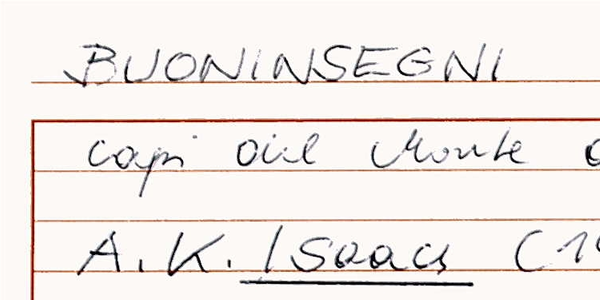 BUONINSEGNI
capi del Monte
A.K. Isaacs (1